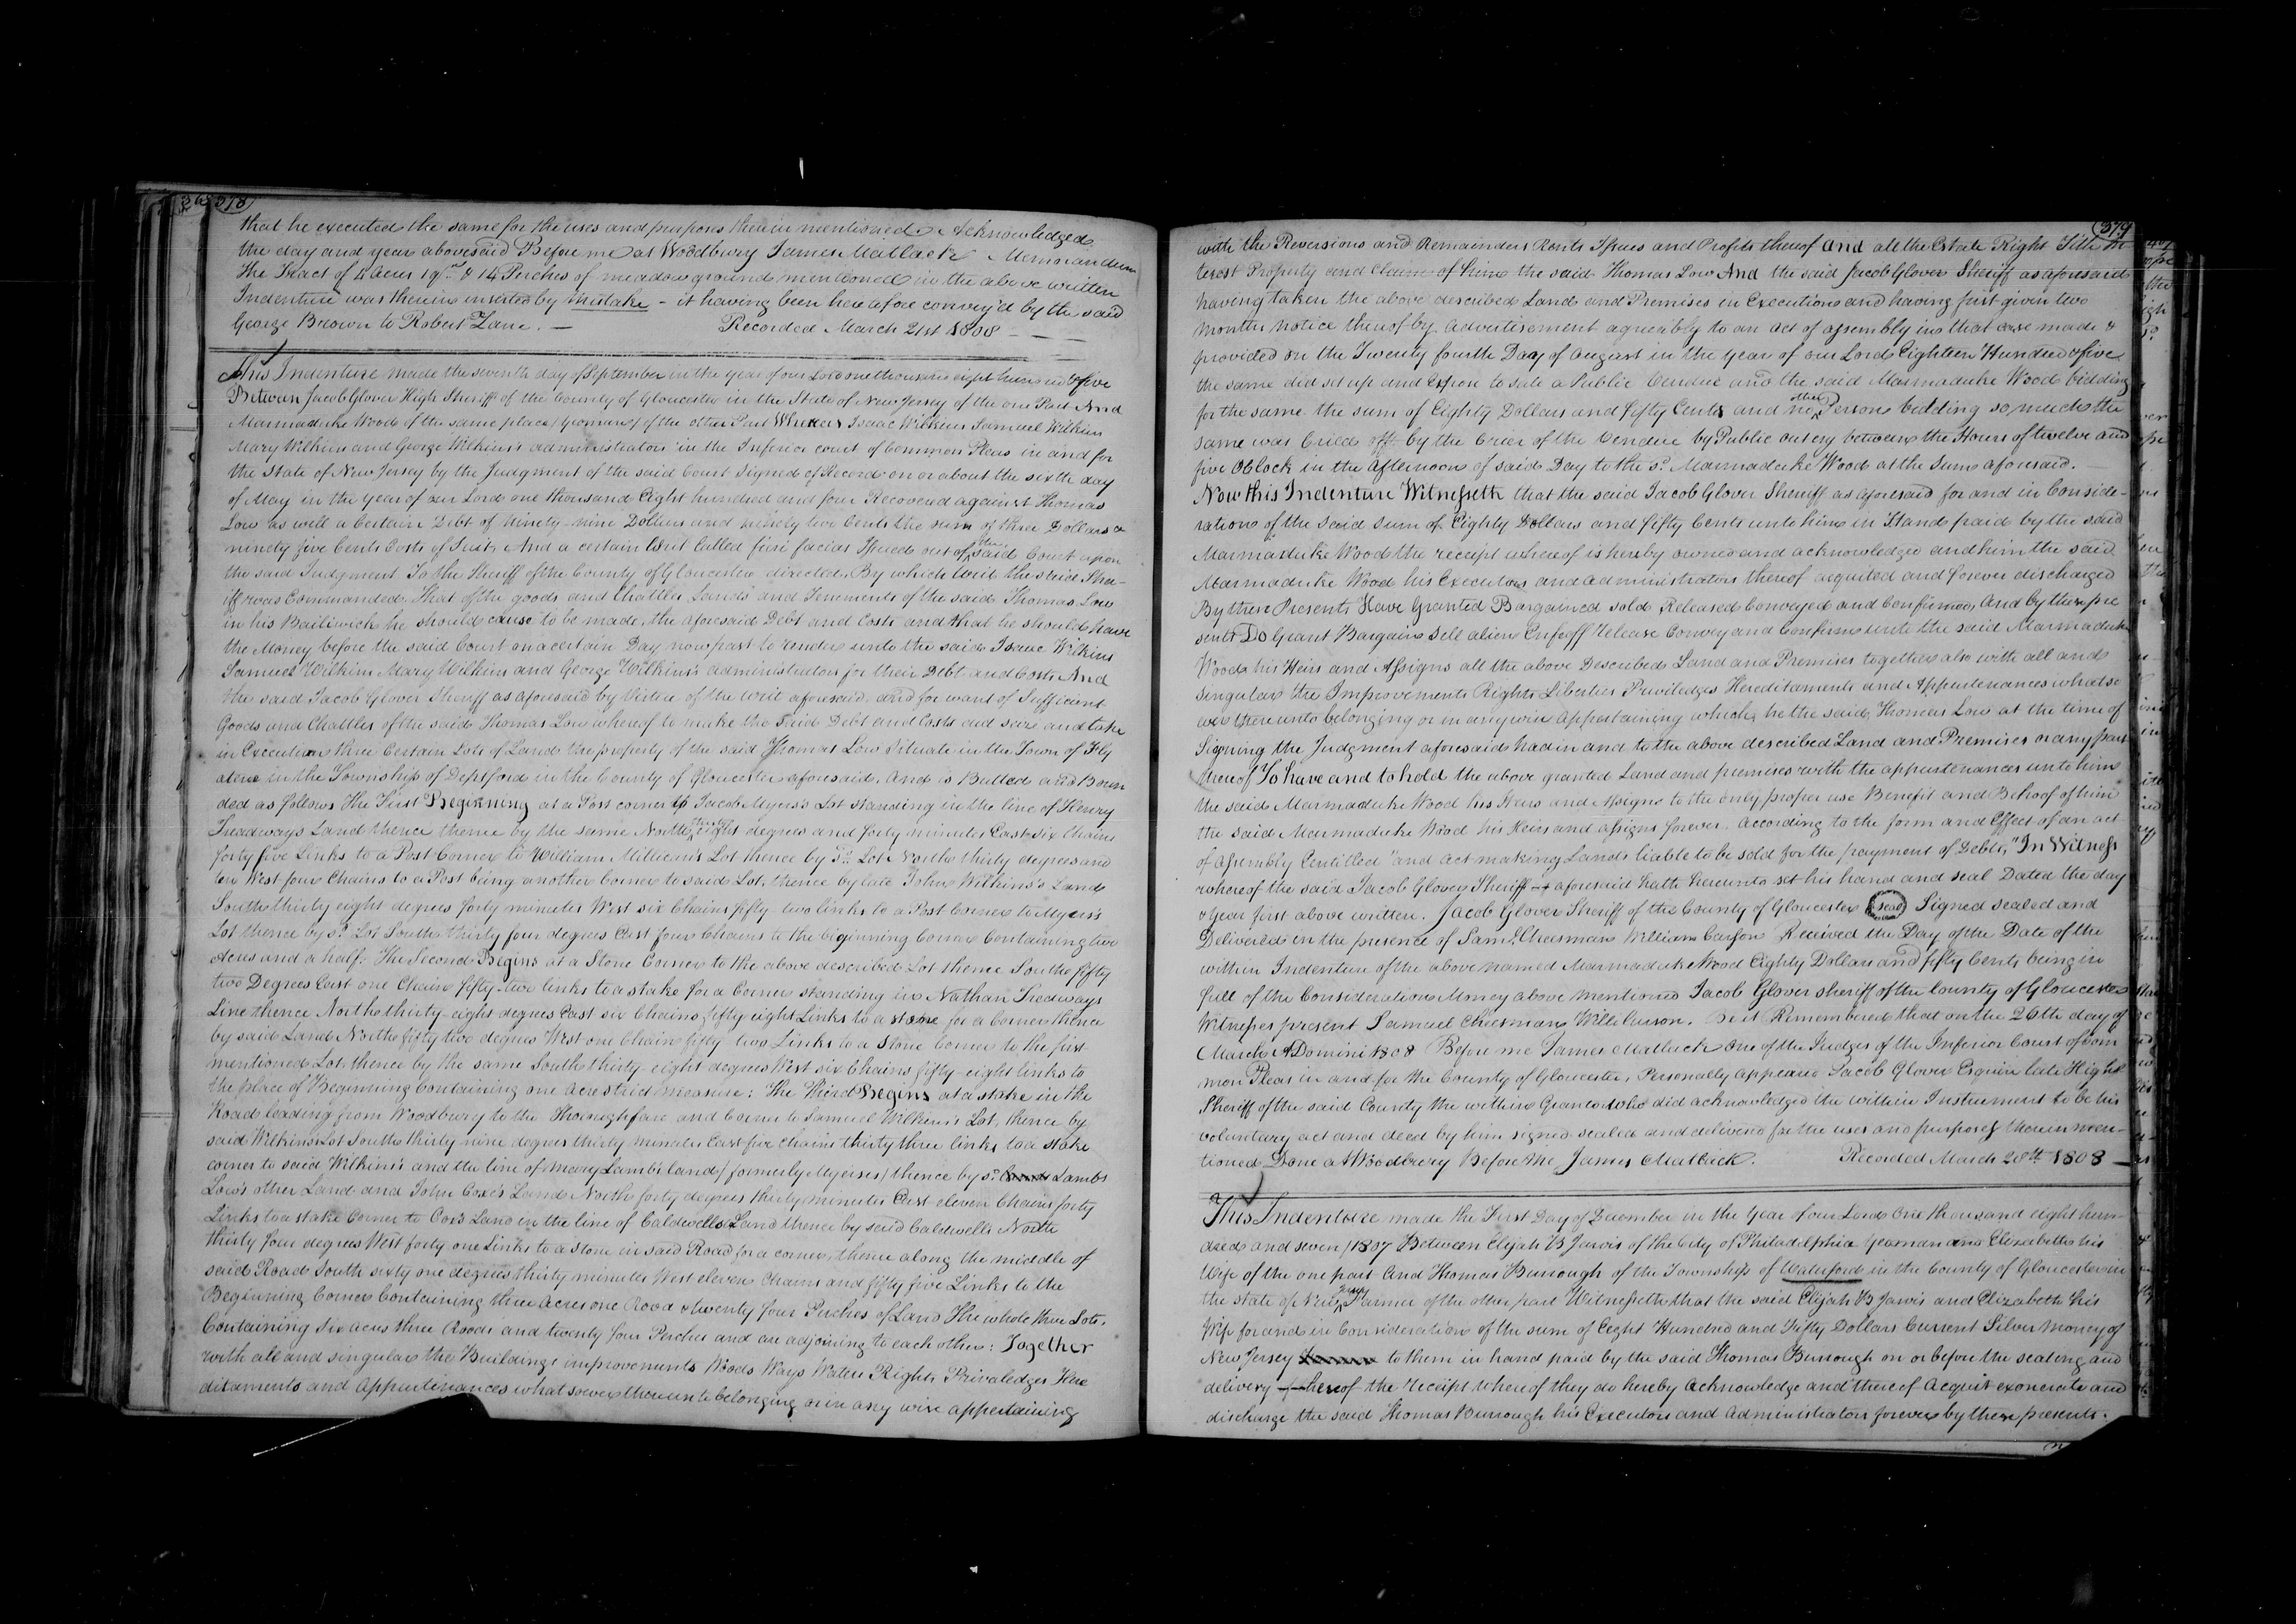 378
that he executed the same for the uses and purposes therein mentioned Acknowledged
the day and year abovesaid Before me at Woodbury James Matlack Memorandum
The Tract of 4 Acres 1 qr. & 14 Perches of meadow ground mentioned in the above written
Indenture was therein inserted by mistake - it having been heretofore convey'd by the said
George Brown to Robert Zane. — Recorded March 21st 1808 - — —
This Indenture made the seventh day of September in the year of our Lord one thousand eight hundred & five
Between Jacob Glover High Sheriff of the County of Gloucester in the State of New Jersey of the one Part And
Marmaduke Wood of the same place / Yeoman / of the other Part Whereas Isaac Wilkins Samuel Wilkin
Mary Wilkin and George Wilkins's administrators in the Inferior court of Common Pleas in and for
the State of New Jersey by the Judgment of the said Court Signed of Record on or about the sixth day
of May in the year of our Lord one thousand Eight hundred and four Recovered against Thomas
Low as well a Certain Debt of Ninety-nine Dollars and ninety two Cents the sum of three Dollars &
ninety five Cents Costs of Suit, And a certain Writ Called fieri facias Issued out of the said Court upon
the said Judgment To the Sheriff of the County of Gloucester directed, By which Writ the said Sher-
iff was Commanded, That of the goods and Chattles Lands and Tenements of the said Thomas Low
in his Bailiwick he should cause to be made, the aforesaid Debt and Costs and that he should have
the Money before the said Court on a certain Day now past to render unto the said Isaac Wilkins
Samuel Wilkins Mary Wilkins and George Wilkins's administrators for their Debt and Costs And
the said Jacob Glover Sheriff as aforesaid by Virtue of the writ aforesaid and for want of Sufficient
Goods and Chattles of the said Thomas Low whereof to make the said Debt and Costs did seize and take
in Execution three Certain Lots of Land the property of the said Thomas Low Situate in the Town of Fly
atem in the Township of Deptford in the County of Gloucester aforesaid. And is Butted and Boun
ded as follows The First Beginning at a Post corner to Jacob Myers's Lot standing in the line of Henry
Treadways Land thence thence by the same North thirty eight degrees and forty minutes East six Chains
forty five Links to a Post Corner to William Millican's Lot thence by sd. Lot North thirty degrees and
ten West four Chains to a Post being another Corner to said Lot, thence by late John Wilkins's Land
South thirty eight degrees forty minutes West six Chains fifty-two links to a Post Corner to Myers's
Lot thence by sd. Lot South thirty four degrees East four Chains to the beginning Corner Containing two
Acres and a half: The Second Begins at a Stone Corner to the above described Lot thence South fifty
two Degrees East one Chain fifty-two links to a stake for a Corner standing in Nathan Tredways
Line thence North thirty-eight degrees East six Chains fifty eight Links to a stone for a Corner thence
by said Land North fifty two degrees West one Chain fifty two Links to a Stone Corner to the first
mentioned Lot, thence by the same South thirty-eight degrees West six Chains fifty-eight links to
the place of Beginning Containing one Acre strict measure: The Third Begins at a stake in the
Road leading from Woodbury to the Thoroughfare and Corner to Samuel Wilkins's Lot, thence by
said Wilkins's Lot South thirty nine degrees thirty minutes East five Chains thirty three links to a stake
corner to said Wilkins's and the line of Mary Lamb's land / formerly Myerses / thence by sd. Lambs
Low's other Land and John Coxe's Land North forty degrees thirty minutes East eleven Chains forty
Links to a stake Corner to Cox's Land in the line of Caldwells Land thence by said Caldwells North
thirty four degrees West forty one Links to a Stone in said Road for a corner, thence along the middle of
said Road South sixty one degrees thirty minutes West eleven Chains and fifty five Links to the
Beginning Corner Containing three Acres one Rood & twenty four Perches of Land The whole three Lots,
Containing Six acres three Roods and twenty four Perches and are adjoining to each other: Together
with all and singular the Buildings improvements Woods Ways Waters Rights Priviledges Here
ditaments and Appertinances whatsoever thereunto belonging or in any wise appertaining
379
with the Reversions and Remainders Rents Issues and Profits thereof and all the Estate Right Title In
terest Property and Claim of him the said Thomas Low And the said Jacob Glover Sheriff as aforesaid
having taken the above described Land and Premises in Execution and having first given two
months notice thereof by advertisement agreeably to an act of assembly in that case made &
provided on the Twenty fourth Day of August in the year of our Lord Eighteen Hundred & five
the same did set up and Expose to sale a Public Vendue and the said Marmaduke Wood bidding
for the same the sum of Eighty Dollars and fifty Cents and no other Person bidding so much the
same was Cried off by the Crier of the Vendue by Public outcry between the Hours of twelve and
five OClock in the afternoon of said Day to the sd. Marmaduke Wood at the Sum aforesaid.
Now this Indenture Witnesseth that the said Jacob Glover Sheriff as aforesaid for and in Conside-
ration of the said sum of Eighty Dollars and fifty Cents unto him in Hand paid by the said
Marmaduke Wood the receipt whereof is hereby owned and acknowledged and him the said
Marmaduke Wood his Executors and administrators thereof acquited and forever discharged
By these Presents Have Granted Bargained sold Released Conveyed and Confirmed, And by these pre
sents Do Grant Bargain Sell alien Enfeoff Release Convey and Confirm unto the said Marmaduke
Wood his Heirs and Assigns all the above Described Land and Premises together also with all and
singular the Improvements Rights Liberties Priviledges Hereditaments and Appurtenances whatso
ever thereunto belonging or in any wise appertaining which he the said Thomas Low at the time of
Signing the Judgment aforesaid had in and to the above described Land and Premises or any part
thereof To have and to hold the above granted Land and premises with the appurtenances unto him
the said Marmaduke Wood his Heirs and Assigns to the only proper use Benefit and Behoof of him
the said Marmaduke Wood his Heirs and assigns forever. According to the form and Effect of an act
of Assembly Centitled "and act making Lands liable to be sold for the payment of Debts," In Witness
whereof the said Jacob Glover Sheriff aforesaid hath hereunto set his hand and seal Dated the day
& Year first above written. Jacob Glover Sheriff of the County of Gloucester (seal) Signed sealed and
Delivered in the presence of Saml. Cheesman William Carson Received the Day of the Date of the
within Indenture of the above named Marmaduke Wood Eighty Dollars and fifty Cents being in
full of the Consideration Money above mentioned Jacob Glover Sheriff of the County of Gloucester
Witnesses present Samuel Cheesman Will Curson. Be it Remembered that on the 26th day of
March ADomini 1808 Before me James Matlack one of the Judges of the Inferior Court of Com
mon Pleas in and for the County of Gloucester, Personally appeared Jacob Glover Esquire late High
Sheriff of the said County the within Grantor who did acknowledged the within Instrument to be his
voluntary act and deed by him signed sealed and delivered for the uses and purposes therein men-
tioned Done at Woodbury Before Me James Matlack. Recorded March 28th 1808 —
This Indenture made the First Day of December in the Year of our Lord One thousand eight hun-
dred and seven / 1807 Between Elijah B Jarvis of the City of Philadelphia Yeoman and Elizabeth his
Wife of the one part And Thomas Burrough of the Township of Waterford in the County of Gloucester in
the state of New Jersey Farmer of the other part Witnesseth that the said Elijah B Jarvis and Elizabeth his
Wife for and in Consideration of the sum of Eight Hundred and Fifty Dollars Current Silver Money of
New Jersey to them in hand paid by the said Thomas Burrough on or before the sealing and
delivery hereof the receipt whereof they do hereby Acknowledge and thereof Acquit exonerate and
discharge the said Thomas Burrough his Executors and Administrators forever by these presents.